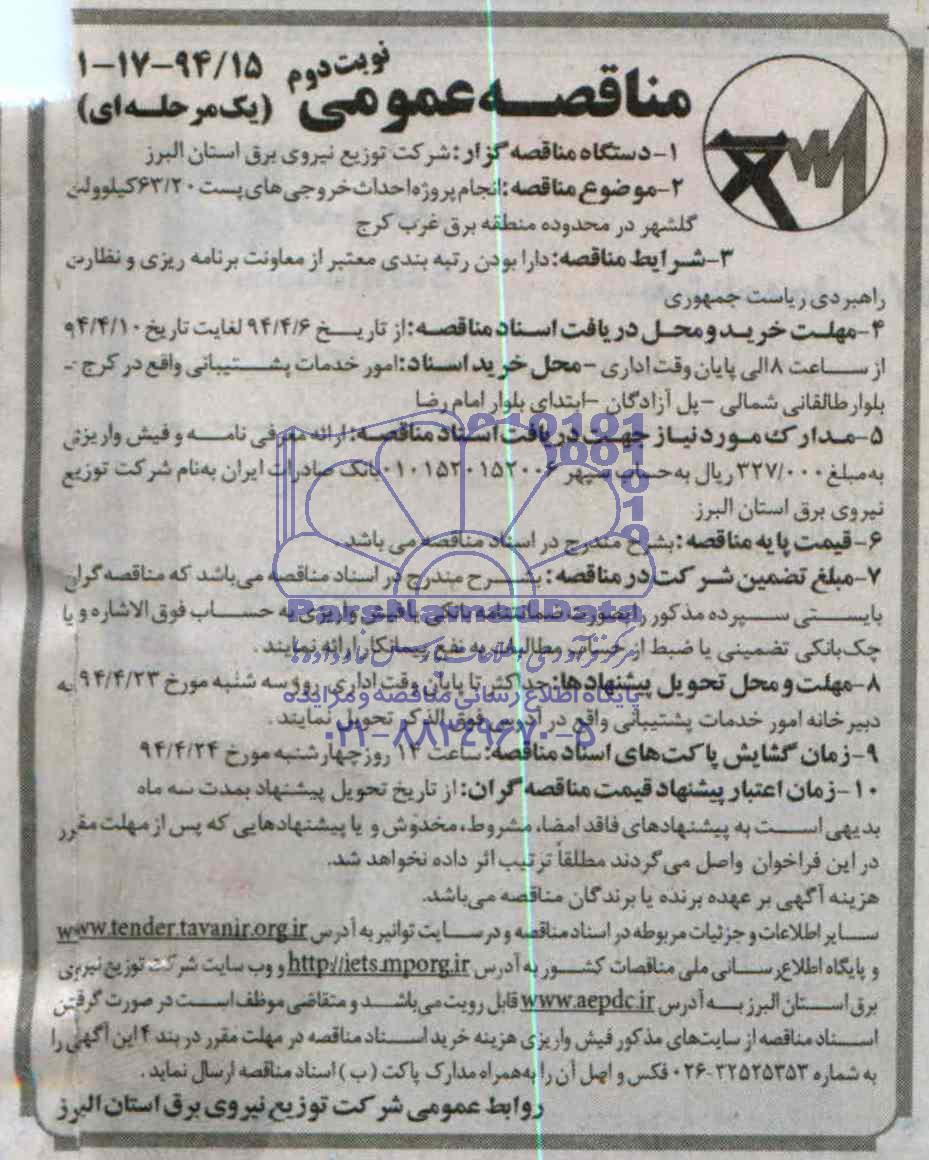 مناقصه عمومی نوبت دوم ۱-۱۷-۹۴/۱۵
(یک مرحله‌ای)
۱-دستگاه مناقصه گزار: شرکت توزیع نیروی برق استان البرز
۲-موضوع مناقصه: انجام پروژه احداث خروجی های پست ۶۳/۲۰کیلوولت
گلشهر در محدوده منطقه برق غرب کرج
۳-شرایط مناقصه: دارا بودن رتبه بندی معتبر از معاونت برنامه ریزی و نظارت
راهبردی ریاست جمهوری
۴-مهلت خرید و محل دریافت اسناد مناقصه: از تاریخ ۹۴/۴/۶ لغایت تاریخ ۹۴/۴/۱۰
از ساعت ۸ الی پایان وقت اداری -محل خرید اسناد: امور خدمات پشتیبانی واقع در کرج -
بلوار طالقانی شمالی -پل آزادگان -ابتدای بلوار امام رضا
۵-مدارک مورد نیاز جهت دریافت اسناد مناقصه: ارائه معرفی نامه و فیش واریزی
به مبلغ ۳۲۷/۰۰۰ ریال به حساب سپهر ۰۱۰۱۵۲۰۱۵۲۰۰۶ بانک صادرات ایران به‌نام شرکت توزیع
نیروی برق استان البرز
۶-قیمت پایه مناقصه: بشرح مندرج در اسناد مناقصه می باشد.
۷-مبلغ تضمین شرکت در مناقصه: بشرح مندرج در اسناد مناقصه می‌باشد که مناقصه‌گران
بایستی سپرده مذکور را بصورت ضمانتنامه بانکی یا فیش واریزی به حساب فوق الاشاره و یا
چک بانکی تضمینی یا ضبط از حساب مطالبات به نفع پیمانکار ارائه نمایند.
۸-مهلت و محل تحویل پیشنهادها: حداکثر تا پایان وقت اداری روز سه شنبه مورخ ۹۴/۴/۲۳ به
دبیرخانه امور خدمات پشتیبانی واقع در آدرس فوق الذکر تحویل نمایند.
۹-زمان گشایش پاکت‌های اسناد مناقصه: ساعت ۱۴ روز چهارشنبه مورخ ۹۴/۴/۲۴
۱۰-زمان اعتبار پیشنهاد قیمت مناقصه گران: از تاریخ تحویل پیشنهاد بمدت سه ماه
بدیهی است به پیشنهادهای فاقد امضا، مشروط، مخدوش و یا پیشنهادهایی که پس از مهلت مقرر
در این فراخوان واصل می‌گردند مطلقاً ترتیب اثر داده نخواهد شد.
هزینه آگهی بر عهده برنده یا برندگان مناقصه می‌باشد.
سایر اطلاعات و جزئیات مربوطه در اسناد مناقصه و در سایت توانیر به آدرس www.tender.tavanir.org.ir
و پایگاه اطلاع‌رسانی ملی مناقصات کشور به آدرس http://iets.mporg.ir و وب سایت شرکت توزیع نیروی
برق استان البرز به آدرس www.aepdc.ir قابل رویت می‌باشد و متقاضی موظف است در صورت گرفتن
اسناد مناقصه از سایت‌های مذکور فیش واریزی هزینه خرید اسناد مناقصه در مهلت مقرر در بند ۴ این آگهی را
به شماره ۳۲۵۲۵۳۵۳-۰۲۶ فکس و اصل آن را به‌همراه مدارک پاکت (ب) اسناد مناقصه ارسال نماید.
روابط عمومی شرکت توزیع نیروی برق استان البرز
ParsNamadData
پایگاه اطلاع رسانی مناقصه و مزایده
۰۲۱-۸۸۳۴۹۶۷۰-۵